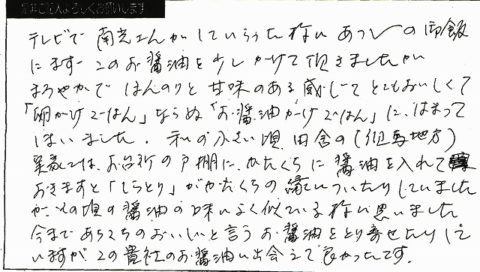 ご記入よろしくお願いします
テレビで南光さんがしていらした様にあつ〱の御飯
にまず このお醤油を少しかけて頂きましたが
まろやかで ほんのりと甘味のある感じで とてもおいしくて
「卵かけごはん」ならぬ「お醤油かけごはん」に、はまって
しまいました。私の小さい頃 田舎の(但馬地方)
実家では、お台所の戸棚に、かたくちに醤油を入れて
おきますと「しらとり」がかたくちの縁についたりしていました
が、その頃の醤油の味によく似ている様に思いました
今まであちこちのおいしいと言うお醤油をとり寄せたりして
いますが この貴社のお醤油に出会えて良かったです。